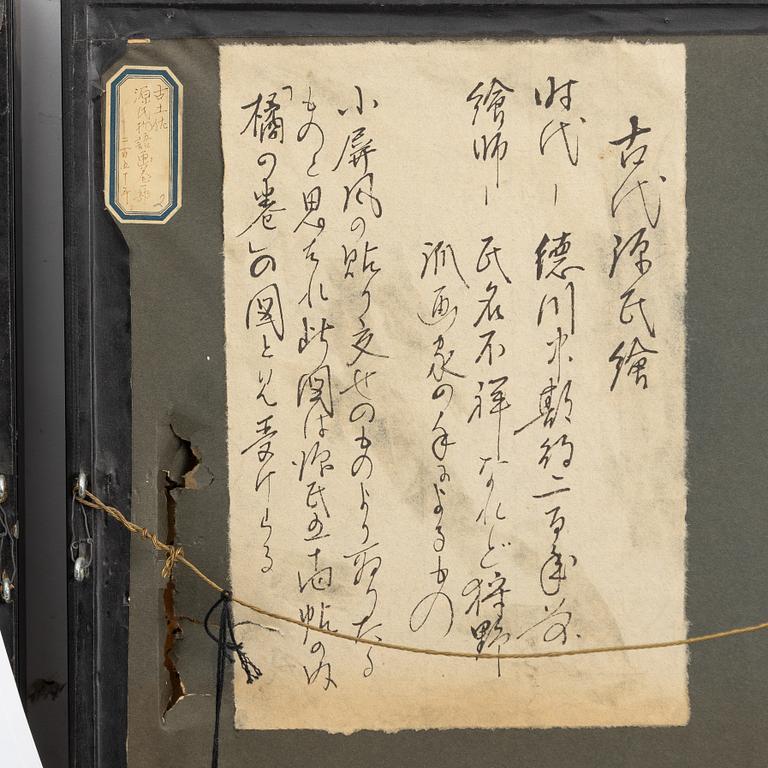 古代源氏繪
時代ー 徳川中期約二百年前
繪師ー 氏名不祥なれど狩野
派画家の手によるもの
小屏風の貼り交せのものより取りたる
ものと思はれ此図は源氏五十四帖の内
「橘の巻」の図と見受けらる
古土佐
源氏物語画